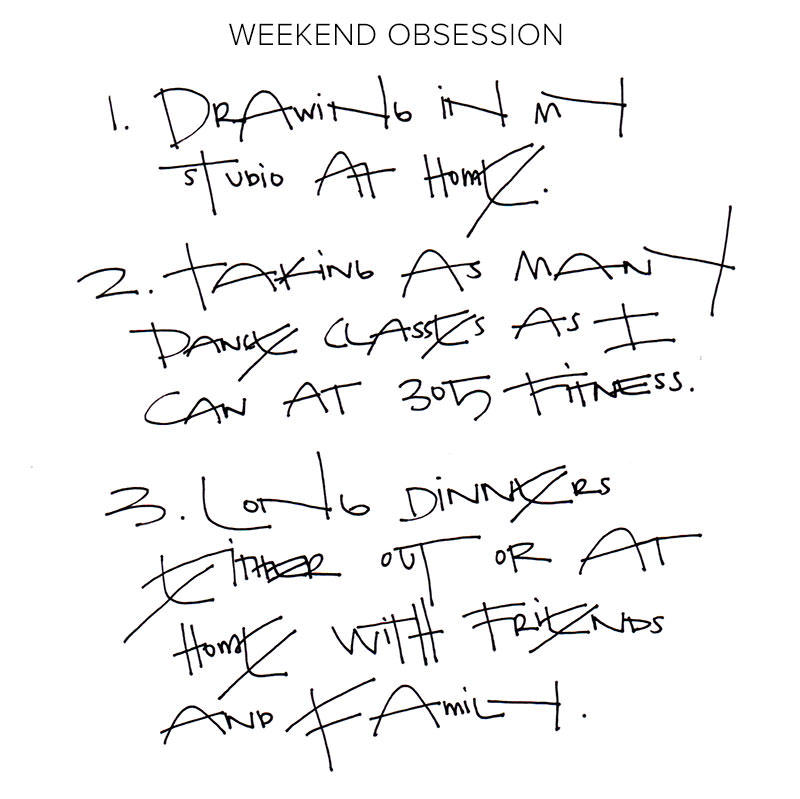 WEEKEND OBSESSION
1. DRAWING IN MY
STUDIO AT HOME.
2. TAKING AS MANY
DANCE CLASSES AS I
CAN AT 305 FITNESS.
3. LONG DINNERS
EITHER OUT OR AT
HOME WITH FRIENDS
AND FAMILY.